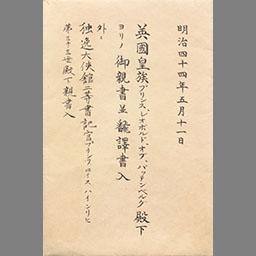 明治四十四年五月十一日
英國皇族プリンス、レオポルド、オブ、バッテンベルグ殿下
ヨリノ御親書並飜譯書入
外ニ
独逸大使館二等書記官プリンス、ロイス、ハインリヒ
第三十三世殿下親書入